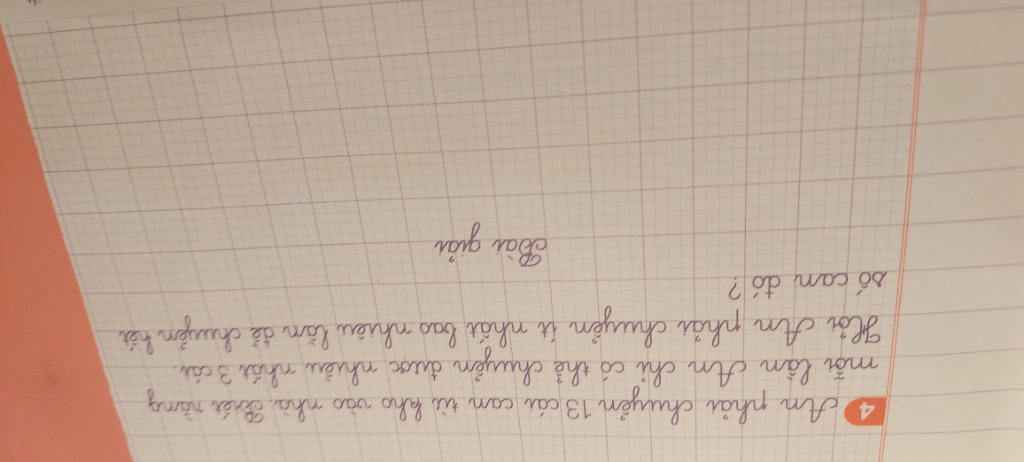 4 An phải chuyển 13 cái can từ kho vào nhà. Biết rằng
mỗi lần An chỉ có thể chuyển được nhiều nhất 3 cái.
Hỏi An phải chuyển ít nhất bao nhiêu lần để chuyển hết
số can đó?
Bài giải